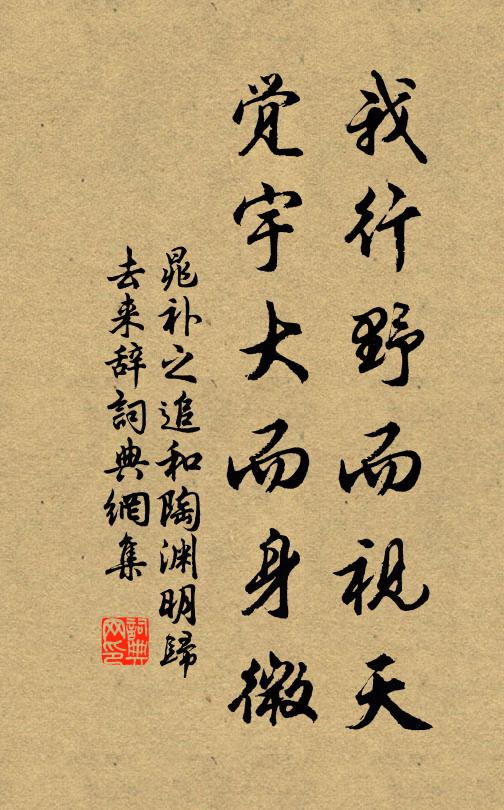 我行野而视天
觉宇大而身微
晁补之追和陶渊明歸
去来辞詞典網集
詞典网印